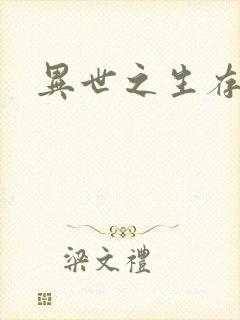 異世之生存
梁文禮